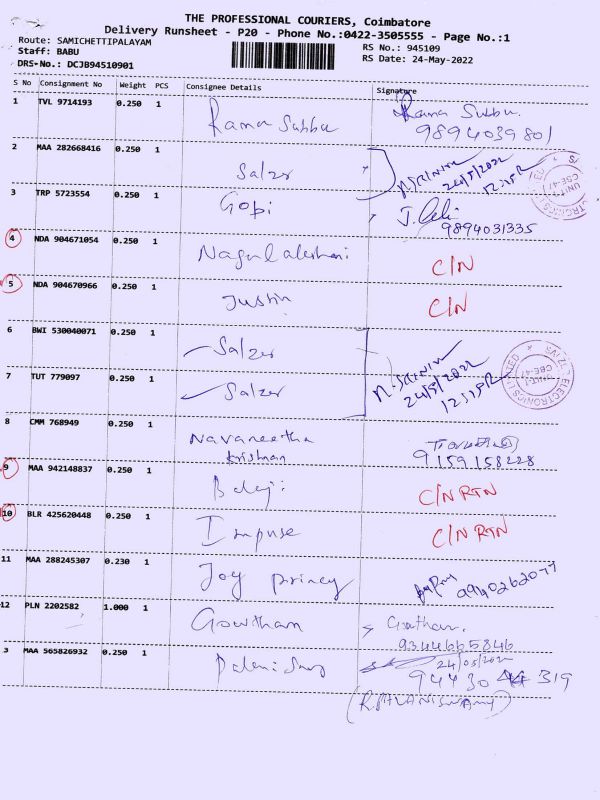 THE PROFESSIONAL COURIERS, Coimbatore
Delivery Runsheet - P20 - Phone No.:0422-3505555 - Page No.:1
Route: SAMICHETTIPALAYAM
RS No.: 945109
Staff: BABU
RS Date: 24-May-2022
DRS-No.: DCJB94510901
S No Consignment No Weight PCS Consignee Details Signature
1 TVL 9714193 0.250 1 Rama Subbu Rama Subbu.
9894039801
2 MAA 282668416 0.250 1 Salzer
24/5/2022
3 TRP 5723554 0.250 1 Gopi
9894031335
4 NDA 904671054 0.250 1 C/N
5 NDA 904670966 0.250 1 Justin C/N
6 BWI 530040071 0.250 1 Salzer
7 TUT 779097 0.250 1 Salzer 24/5/2022
8 CMM 768949 0.250 1 Navaneetha
krishnan 9159158228
9 MAA 942148837 0.250 1 Balaji C/N RTN
10 BLR 425620448 0.250 1 Impuse C/N RTN
11 MAA 288245307 0.230 1 Joy princy
12 PLN 2202582 1.000 1 Gowtham
9344665846
3 MAA 565826932 0.250 1